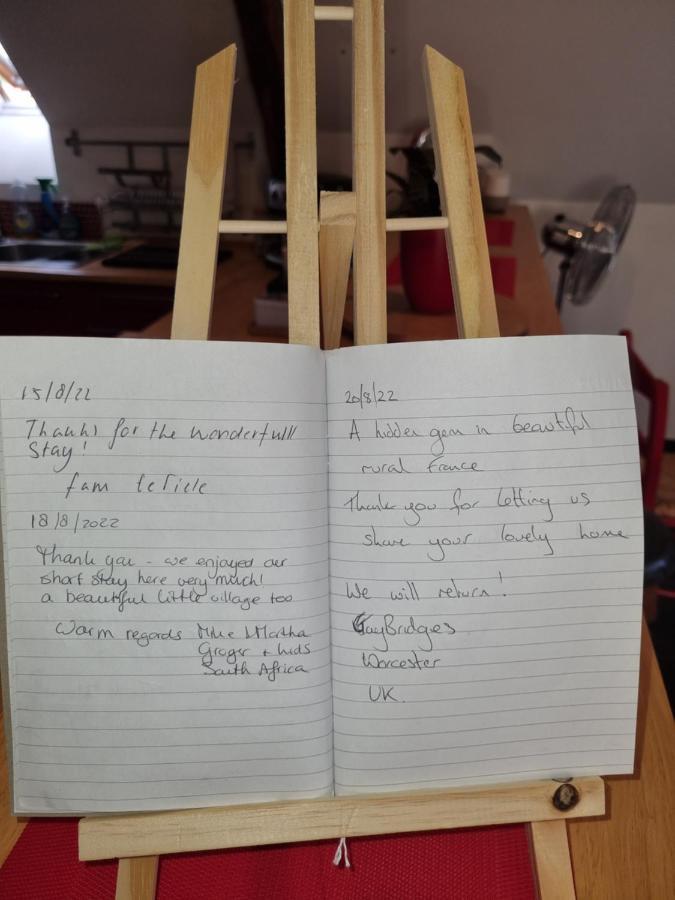 15/8/22
Thanks for the wonderfull
Stay!
fam te
18/8/2022
Thank you - we enjoyed our
short stay here very much!
a beautiful little village too
Warm regards Mike & Martha
+ kids
South Africa
20/8/22
A hidden gem in beautiful
rural France
Thank you for letting us
share your lovely home
We will return!
Gay Bridges
Worcester
UK.